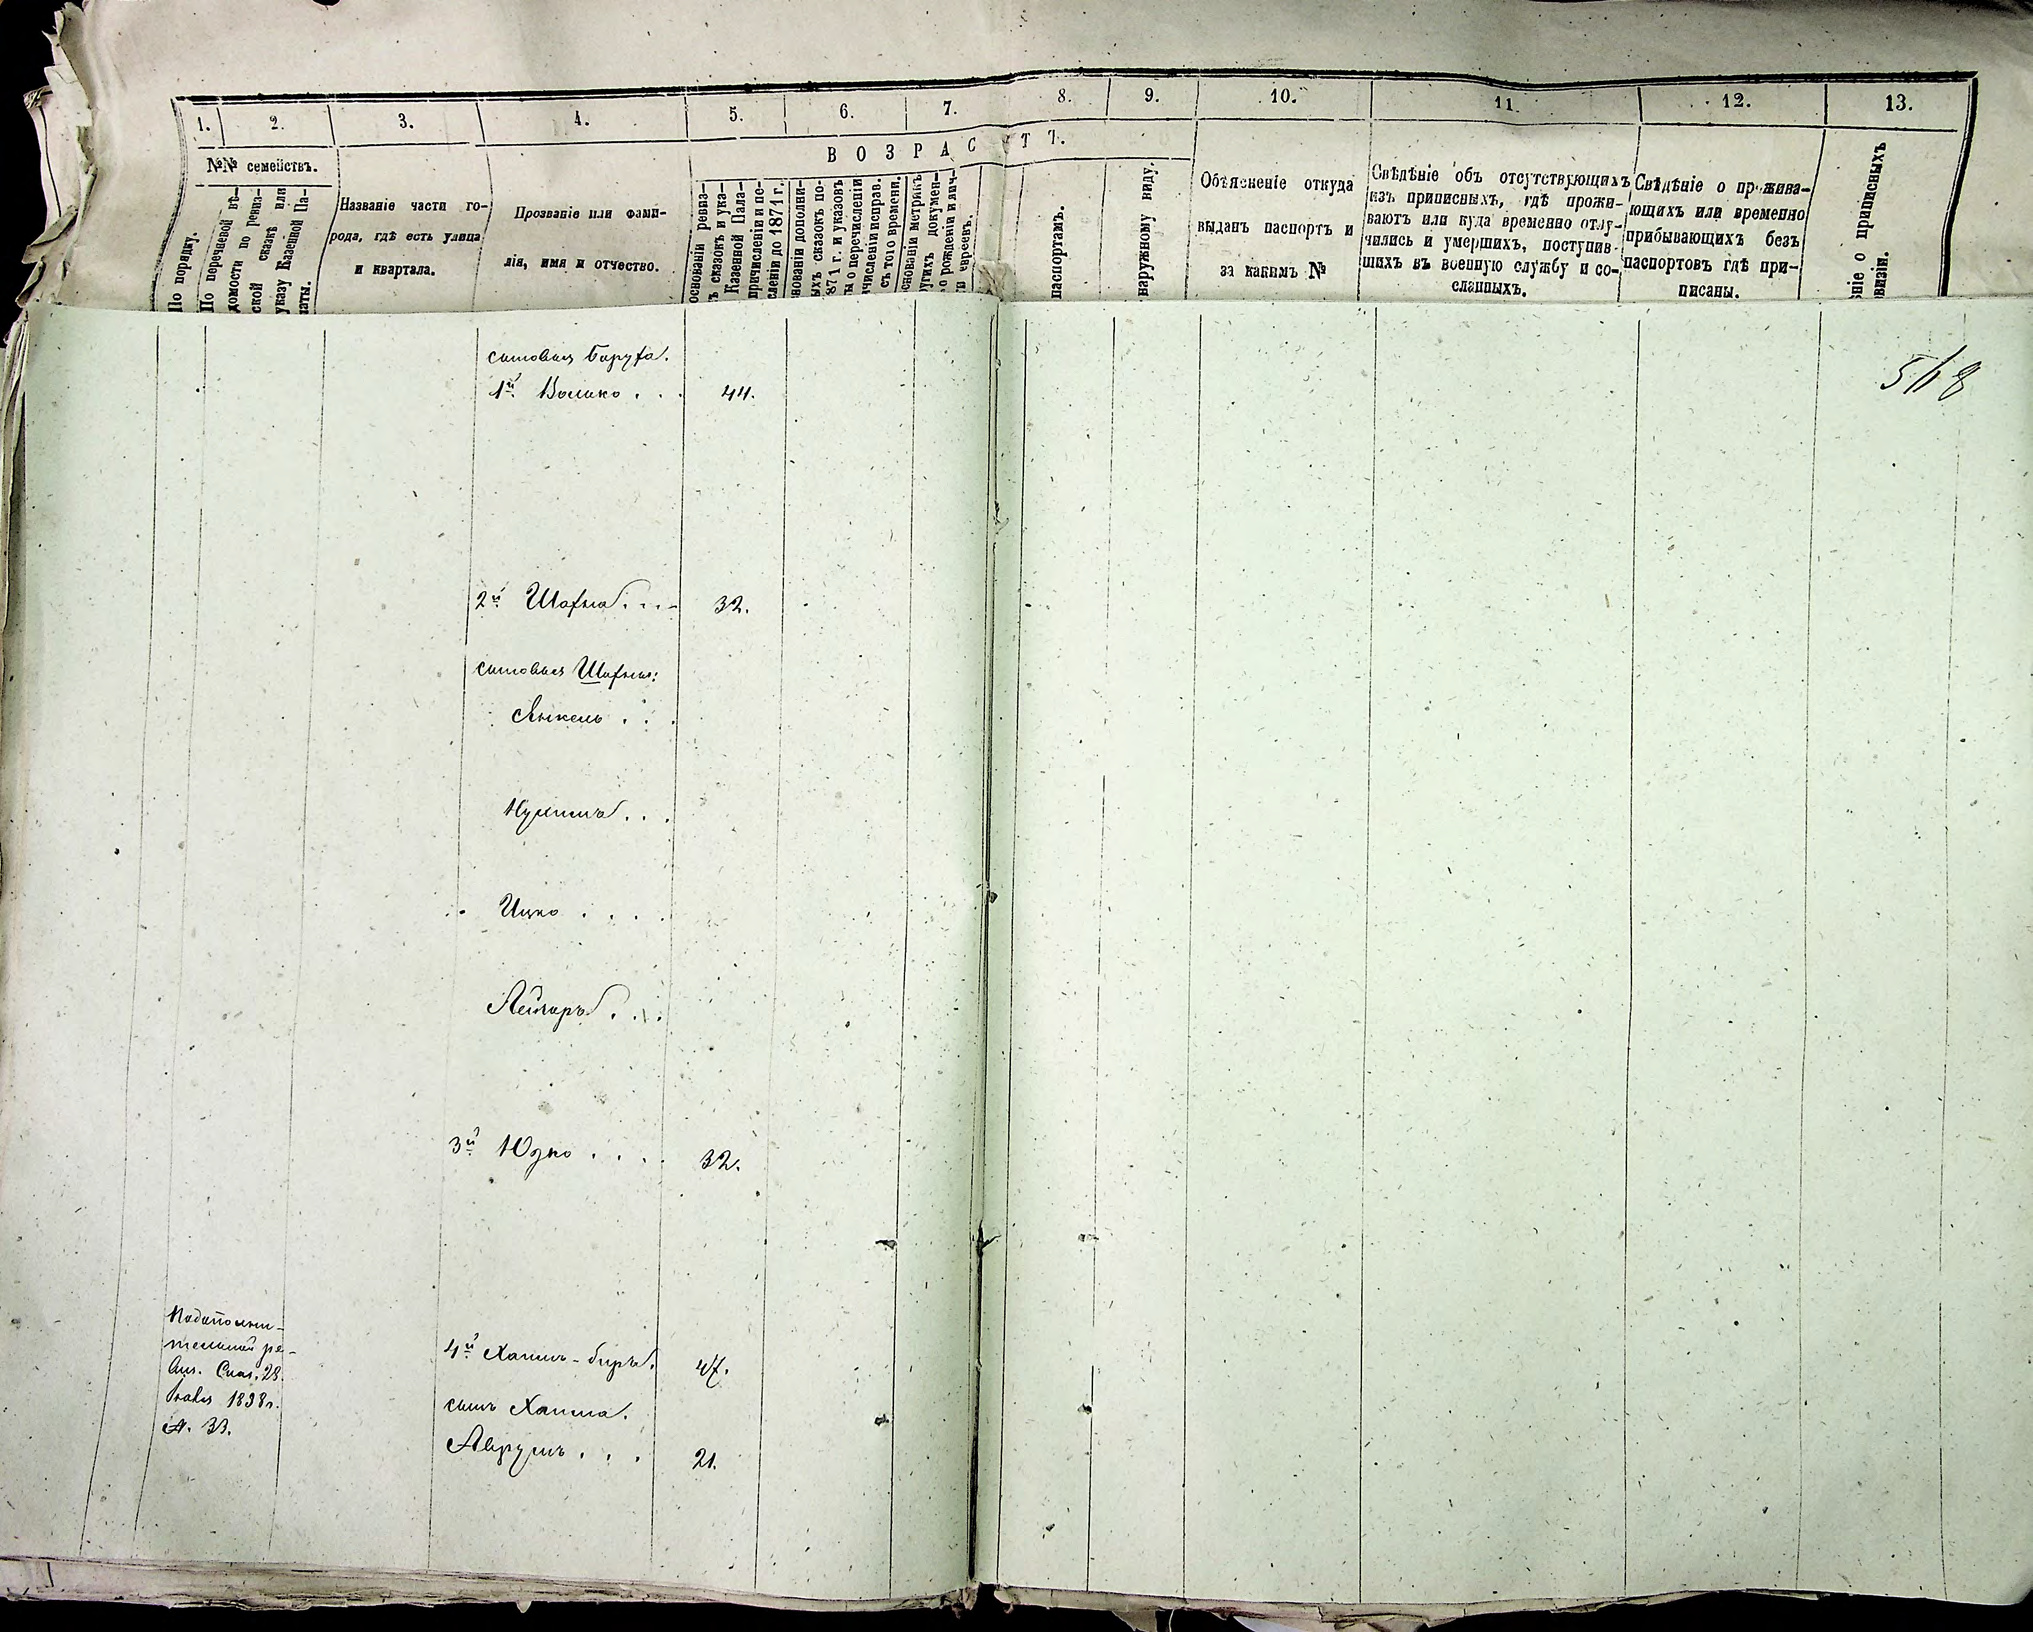 1. 2. 3. 4. 5. 6. 7. 8. 9. 10. 11 12. 13.
ВОЗРАСТЪ.
№№ семействъ.
По порядку.
По перечневой вѣ-
домости по ревиз-
ской сказкѣ или
указу Казенной Па-
латы.
Названіе части го-
рода, гдѣ есть улица
и квартала.
Прозваніе или фами-
лія, имя и отчество.
основаніи ревиз-
ъ сказокъ и ука-
Казенной Пала-
причисленіи и по-
сленіи до 1871 г.
нованіи дополни-
ыхъ сказокъ по-
871 г. и указовъ
ы о перечисленіи
ичисленіи исправ.
съ того времени.
снованіи метрикъ
ругихъ докумен-
о рожденіи и лич-
и евреевъ.
паспортамъ.
наружному виду.
Объясненіе откуда
выданъ паспортъ и
за какимъ №
Свѣдѣніе объ отсутствующихъ
изъ приписныхъ, гдѣ прожи-
ваютъ или куда временно отлу-
чились и умершихъ, поступив-
шихъ въ военную службу и со-
сланныхъ.
Свѣдѣніе о прожива-
ющихъ или временно
прибывающихъ безъ
паспортовъ гдѣ при-
писаны.
ніе о приписныхъ
овизіи.
568
сыновья Баруха.
1й Волько . . . 44.
2й Шахна . . . 32.
сыновья Шахны:
Янкель . . .
Нухимъ . . .
Ицко . . . .
Лейзаръ . . .
3й Юзко . . . . 32.
По дополни-
тельной ре-
виз. Сказ. 28.
1898 г.
№. 33.
4й Хаимъ-биръ. 47.
сынъ Хаима.
Аврумъ . . . 21.